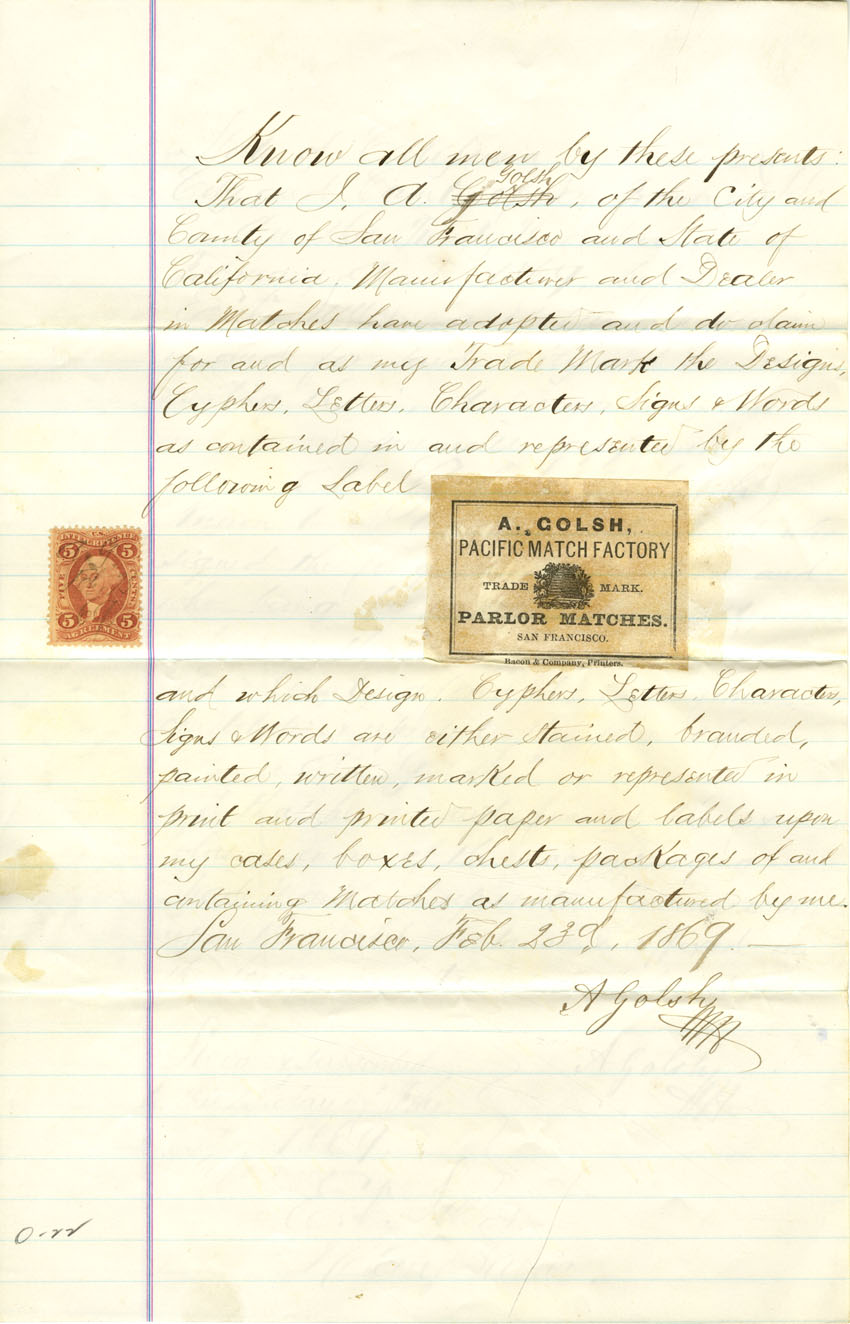 Know all men by these presents:
Golsh
That I, A. Golsh, of the City and
County of San Francisco and State of
California, Manufacturer and Dealer
in Matches have adopted and do claim
for and as my Trade Mark the Designs,
Cyphers, Letters, Characters, Signs & Words
as contained in and represented by the
following Label
A. GOLSH,
PACIFIC MATCH FACTORY
TRADE MARK.
PARLOR MATCHES.
SAN FRANCISCO.
Bacon & Company, Printers.
U.S.
INTER. REVENUE
5 5
FIVE CENTS
5 5
AGREEMENT
and which Design, Cyphers, Letters, Characters,
Signs & Words are either stained, branded,
painted, written, marked or represented in
print and printed paper and labels upon
my cases, boxes, chests, packages of and
containing Matches as manufactured by me.
San Francisco, Feb. 23d, 1869. —
A Golsh